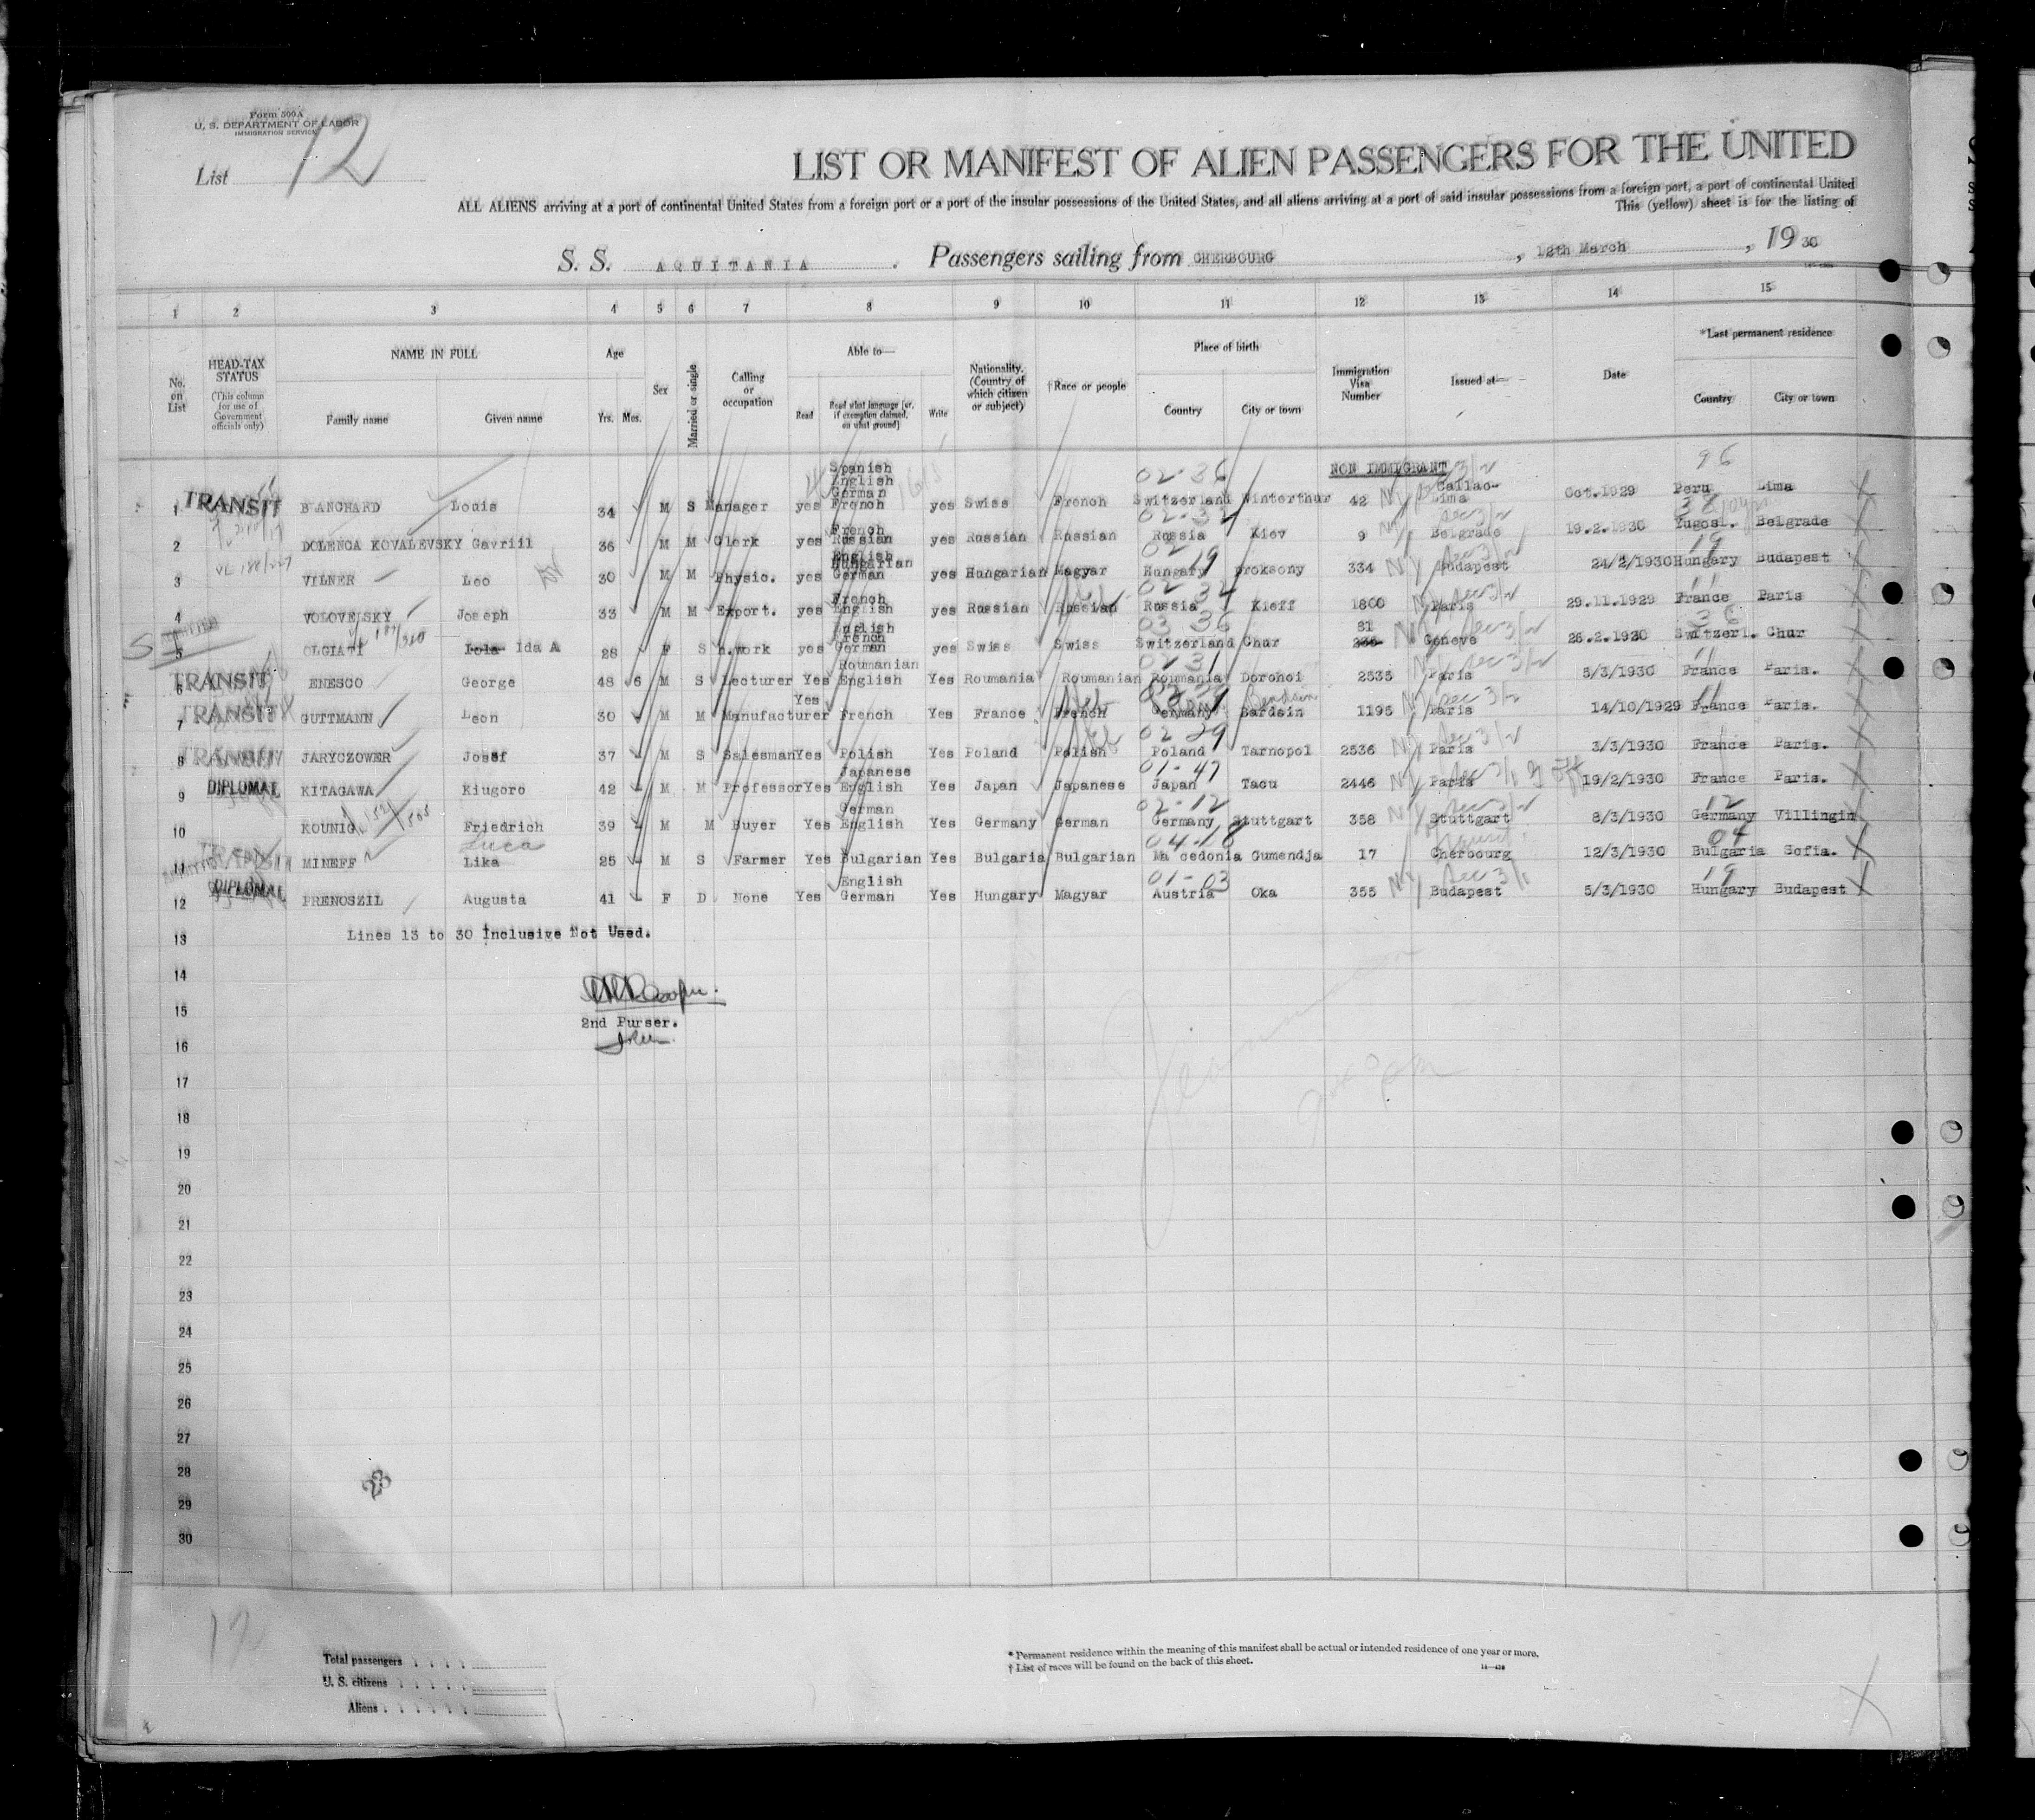 Form 500A
U. S. DEPARTMENT OF LABOR
IMMIGRATION SERVICE
List 12
LIST OR MANIFEST OF ALIEN PASSENGERS FOR THE UNITED
ALL ALIENS arriving at a port of continental United States from a foreign port or a port of the insular possessions of the United States, and all aliens arriving at a port of said insular possessions from a foreign port, a port of continental United
This (yellow) sheet is for the listing of
S. S. AQUITANIA. Passengers sailing from CHERBOURG, 12th March, 1930
1 2 3 4 5 6 7 8 9 10 11 12 13 14 15
No. on List
HEAD-TAX STATUS
(This column for use of Government officials only)
NAME IN FULL
Family name Given name
Age
Yrs. Mos.
Sex
Married or single
Calling or occupation
Able to—
Read
Read what language [or, if exemption claimed, on what ground]
Write
Nationality. (Country of which citizen or subject)
†Race or people
Place of birth
Country City or town
Immigration Visa Number
Issued at—
Date
*Last permanent residence
Country City or town
NON IMMIGRANT
02-36 96
1 TRANSIT BLANCHARD Louis 34 M S Manager yes Spanish English German French yes Swiss French Switzerland Winterthur 42 Callao-Lima Oct.1929 Peru Lima
2 DOLENGA KOVALEVSKY Gavriil 36 M M Clerk yes French Russian yes Russian Russian Russia Kiev 9 Belgrade 19.2.1930 Yugosl. Belgrade
3 VILNER Leo 30 M M Physic. yes English Hungarian German yes Hungarian Magyar Hungary Proksony 334 Budapest 24/2/1930 Hungary Budapest
4 VOLOVELSKY Joseph 33 M M Export. yes French English yes Russian Russian Russia Kieff 1860 Paris 29.11.1929 France Paris
5 OLGIATI Iola Ida A 28 F S h.work yes English French German yes Swiss Swiss Switzerland Chur 81 Geneve 26.2.1930 Switzerl. Chur
6 TRANSIT ENESCO George 48 6 M S Lecturer Yes Roumanian English Yes Roumania Roumanian Roumania Dorohoi 2535 Paris 5/3/1930 France Paris.
7 TRANSIT GUTTMANN Leon 30 M M Manufacturer Yes French Yes France French Germany Bardsin 1195 Paris 14/10/1929 France Paris.
8 TRANSIT JARYCZOWER Josef 37 M S Salesman Yes Polish Yes Poland Polish Poland Tarnopol 2536 Paris 3/3/1930 France Paris.
9 DIPLOMAT KITAGAWA Kiugoro 42 M M Professor Yes Japanese English Yes Japan Japanese Japan Taou 2446 Paris 19/2/1930 France Paris.
10 KOUNIG Friedrich 39 M M Buyer Yes German English Yes Germany German Germany Stuttgart 358 Stuttgart 8/3/1930 Germany Villingin
Luca
11 MINEFF Lika 25 M S Farmer Yes Bulgarian Yes Bulgaria Bulgarian Macedonia Gumendja 17 Cherbourg 12/3/1930 Bulgaria Sofia.
12 DIPLOMAT PRENOSZIL Augusta 41 F D None Yes English German Yes Hungary Magyar Austria Oka 355 Budapest 5/3/1930 Hungary Budapest
13 Lines 13 to 30 Inclusive Not Used.
14
15
2nd Purser.
16
17
18
19
20
21
22
23
24
25
26
27
28
29
30
12
Total passengers
U. S. citizens
Aliens
* Permanent residence within the meaning of this manifest shall be actual or intended residence of one year or more.
† List of races will be found on the back of this sheet.